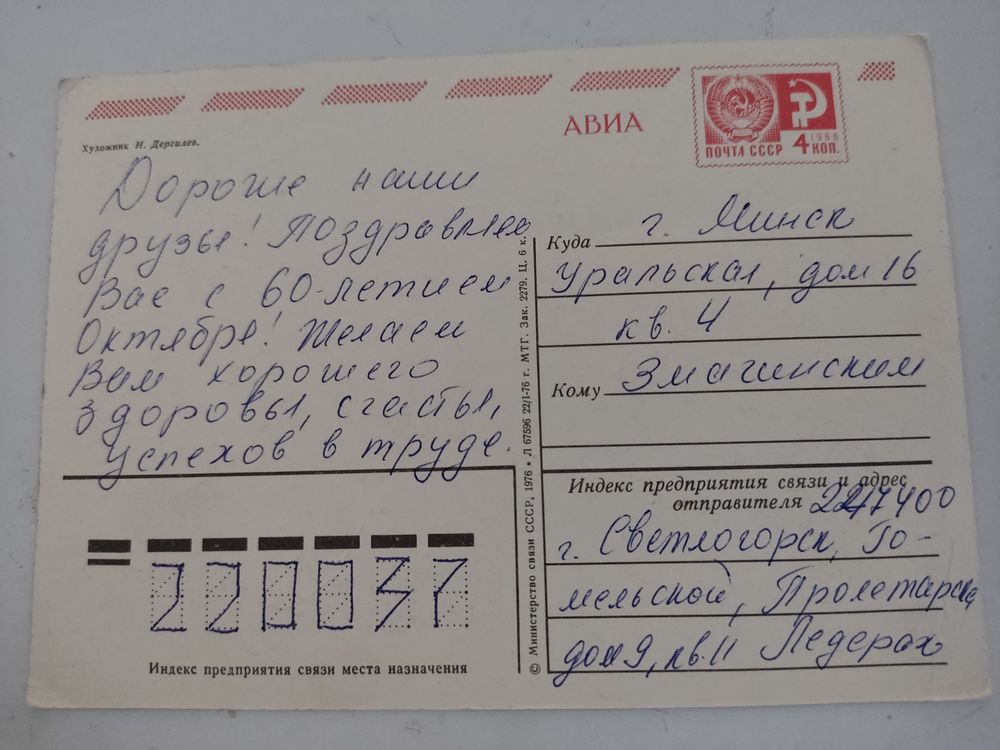 АВИА
ПОЧТА СССР 4 КОП.
1966
Художник И. Дергилев.
Дорогие наши
друзья! Поздравляем
Вас с 60-летием
Октября! Желаем
Вам хорошего
здоровья, счастья,
успехов в труде.
Куда г. Минск
Уральская, дом 16
кв. 4
Кому Змагинским
Индекс предприятия связи и адрес
отправителя 247400
г. Светлогорск, Го-
мельской, Пролетарская
дом 9, кв. 11 Педерах
© Министерство связи СССР, 1976 • Л 67596 22/1-76 г. МТГ. Зак. 2279. Ц. 6 к.
220037
Индекс предприятия связи места назначения